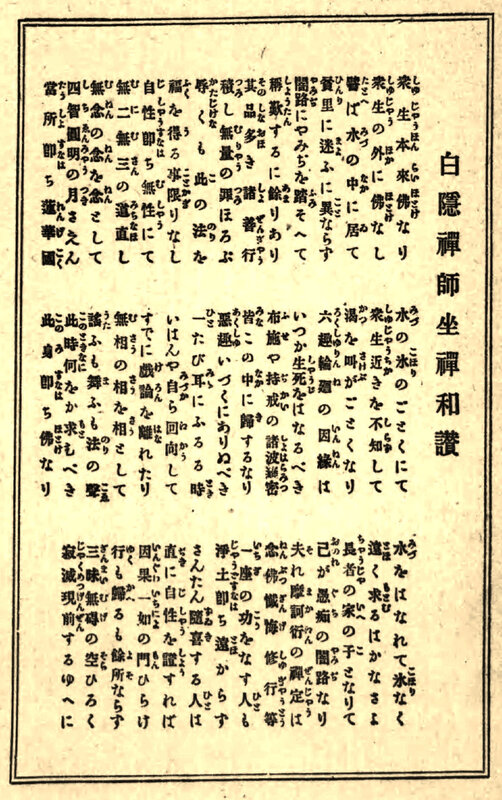 白隱禪師坐禪和讃
衆生本來佛なり 水の氷のごとくにて 水をはなれて氷なく
衆生の外に佛なし 衆生近きを不知して 遠く求るはかなさよ
譬ば水の中に居て 渇を叫がごとくなり 長者の家の子となりて
貧里に迷ふに異ならず 六趣輪廻の因縁は 己が愚痴の闇路なり
闇路にやみぢを踏そへて いつか生死をはなるべき 夫れ摩訶衍の禪定は
稱歎するに餘りあり 布施や持戒の諸波羅密 念佛懺悔修行等
其品多き諸善行 皆この中に歸するなり 一座の功をなす人も
積し無量の罪ほろぶ 惡趣いづくにありぬべき 淨土即ち遠からず
辱くも此の法を 一たび耳にふるる時 さんたん隨喜する人は
福を得る事限りなし いはんや自ら回向して 直に自性を證すれば
自性即ち無性にて すでに戲論を離れたり 因果一如の門ひらけ
無二無三の道直し 無相の相を相として 行も歸るも餘所ならず
無念の念を念として 謠ふも舞ふも法の聲 三昧無礙の空ひろく
四智圓明の月さえん 此時何をか求むべき 寂滅現前するゆへに
當所即ち蓮華國 此身即ち佛なり